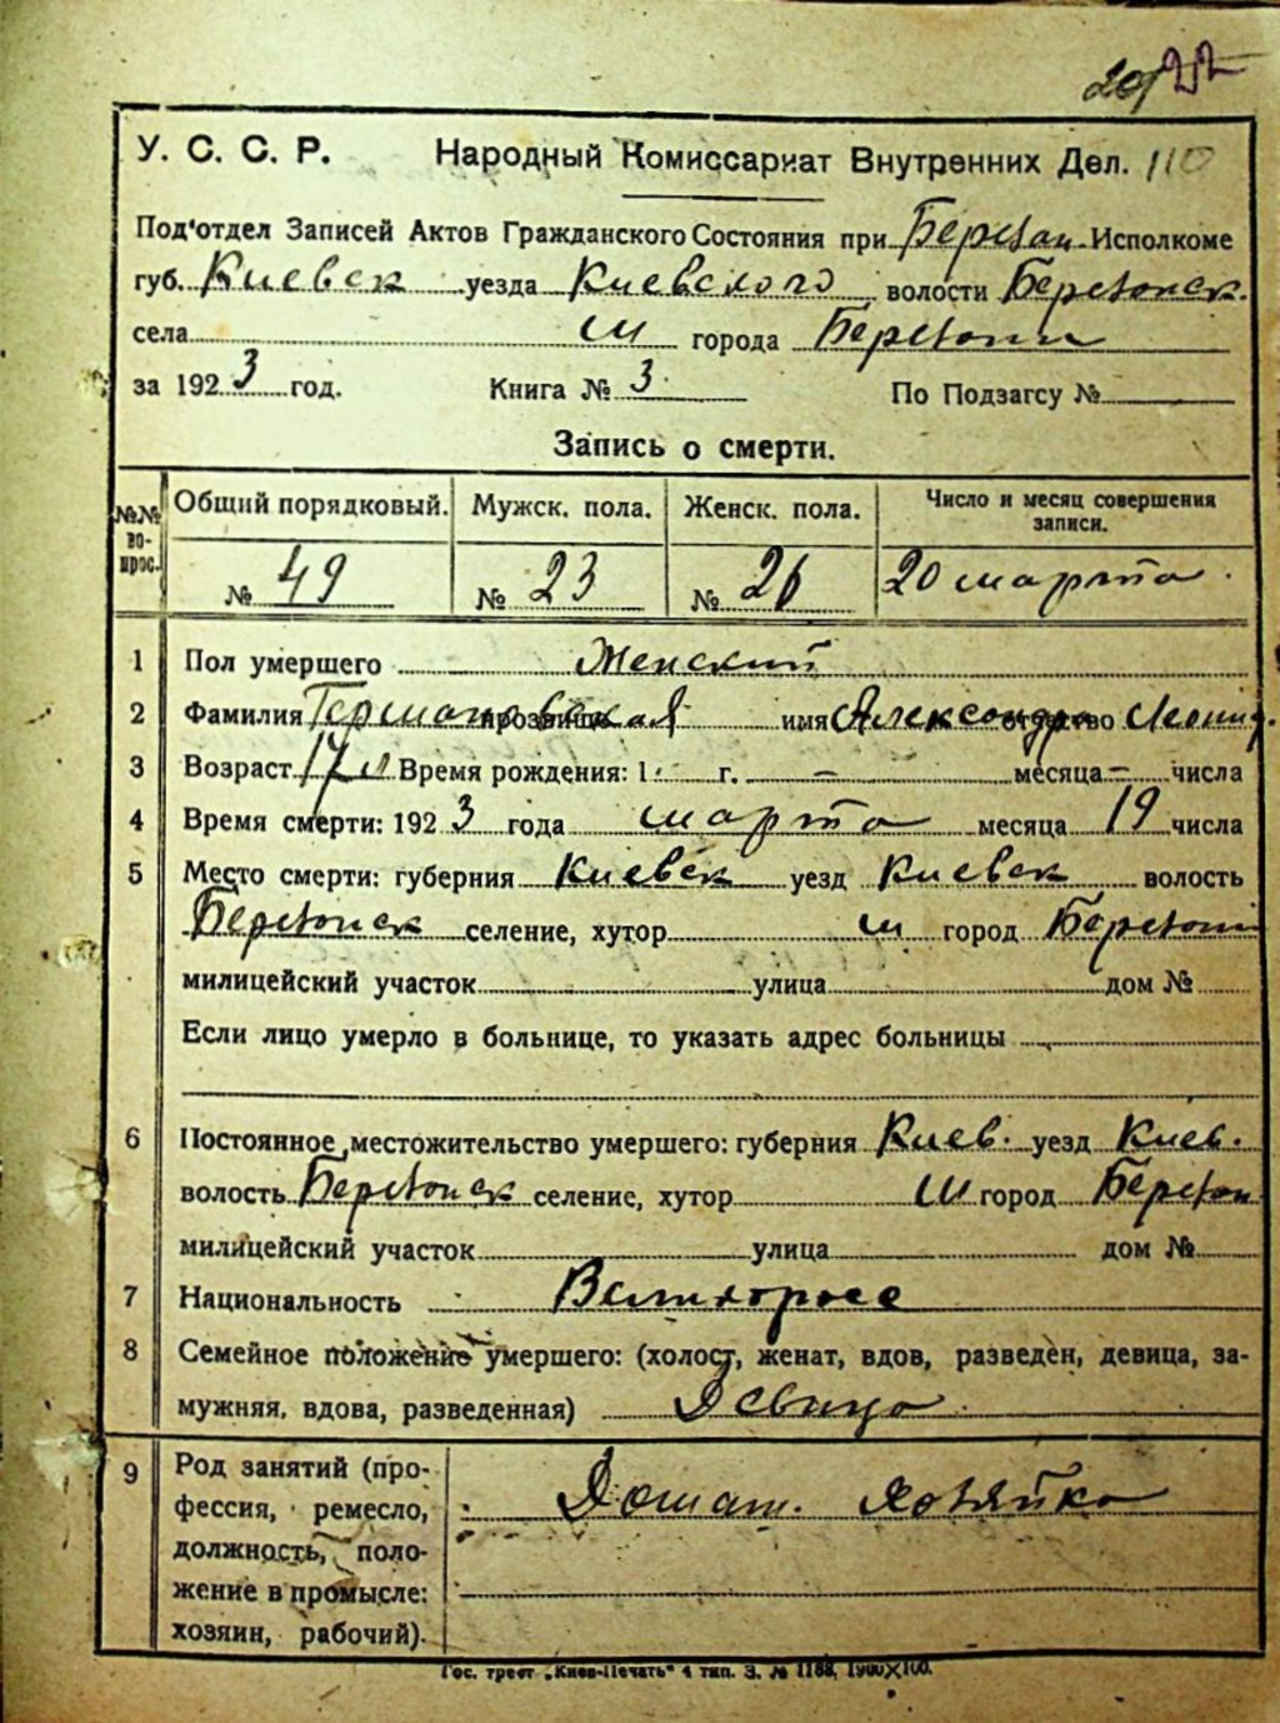 У. С. С. Р. Народный Комиссариат Внутренних Дел. 110
Под'отдел Записей Актов Гражданского Состояния при Березан. Исполкоме
губ. Киевск уезда Киевского волости Березанск.
села м города Березани
за 1923 год. Книга № 3. По Подзагсу №
Запись о смерти.
№№ вопрос. Общий порядковый. Мужск. пола. Женск. пола. Число и месяц совершения записи.
№ 49 № 23 № 26 20 марта.
1 Пол умершего Женский
2 Фамилия Германовская прозвище имя Александра отчество Леонид.
3 Возраст 17 л Время рождения: 1 г. — месяца — числа
4 Время смерти: 1923 года марта месяца 19 числа
5 Место смерти: губерния Киевск уезд Киевск волость
Березанск селение, хутор м город Березани
милицейский участок улица дом №
Если лицо умерло в больнице, то указать адрес больницы
6 Постоянное местожительство умершего: губерния Киев. уезд Киев.
волость Березанск селение, хутор м город Березан
милицейский участок улица дом №
7 Национальность Великоросс
8 Семейное положение умершего: (холост, женат, вдов, разведен, девица, за-
мужняя, вдова, разведенная) Девица
9 Род занятий (про-
фессия, ремесло, Домаш. хозяйка
должность, поло-
жение в промысле:
хозяин, рабочий).
Гос. трест „Киев-Печать" 4 тип. З. № 1188, 1900×100.